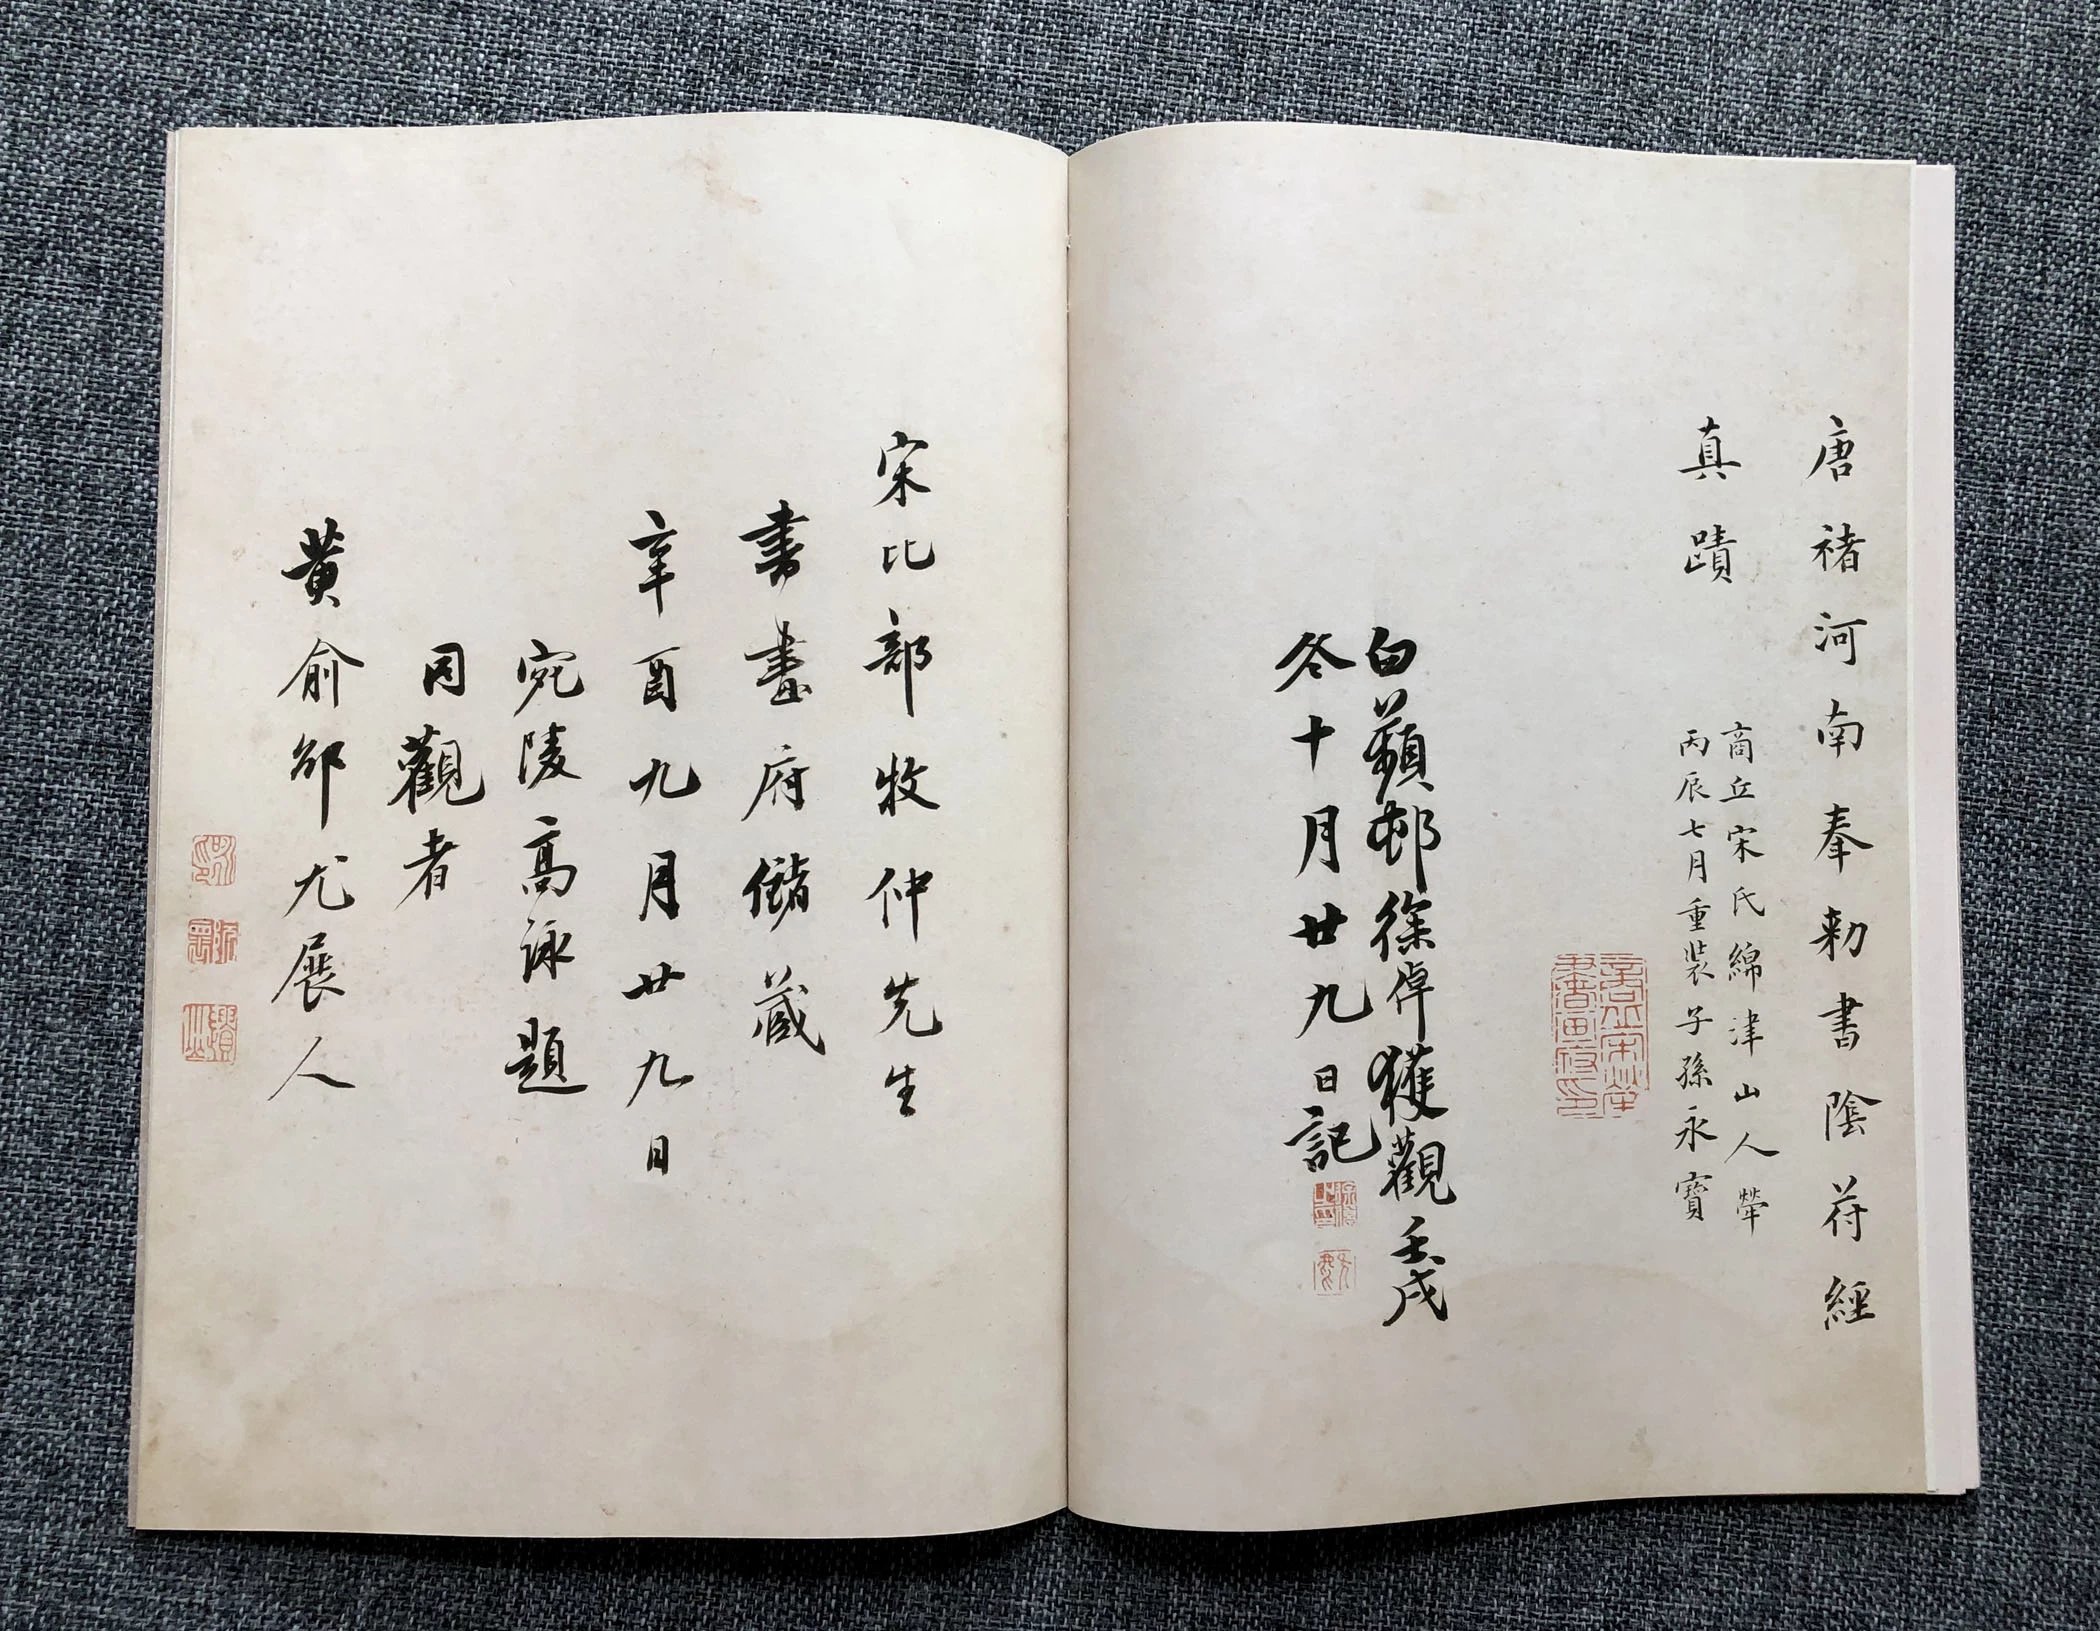 唐褚河南奉勅書陰符經
真蹟
商丘宋氏綿津山人犖
丙辰七月重裝子孫永寶
白蘋邨徐倬獲觀壬戌
冬十月廿九日記
宋比部牧仲先生
書畫府儲藏
辛酉九月廿九日
宛陵高詠題
同觀者
黃俞邰尤展人